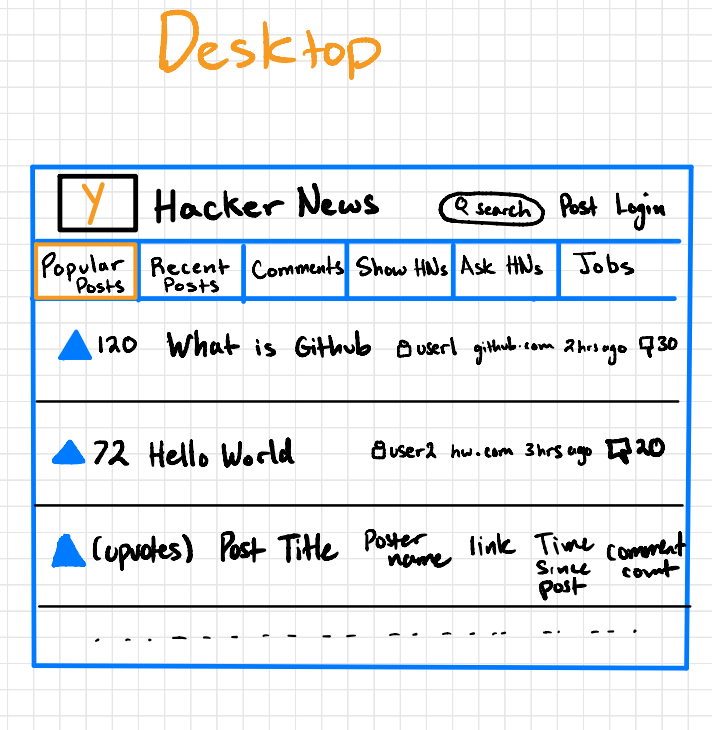 Desktop
Y Hacker News search Post Login
Popular Posts Recent Posts Comments Show HNs Ask HNs Jobs
120 What is Github user1 github.com 2hrs ago 30
72 Hello World user2 hw.com 3hrs ago 20
(upvotes) Post Title Poster name link Time since post comment count